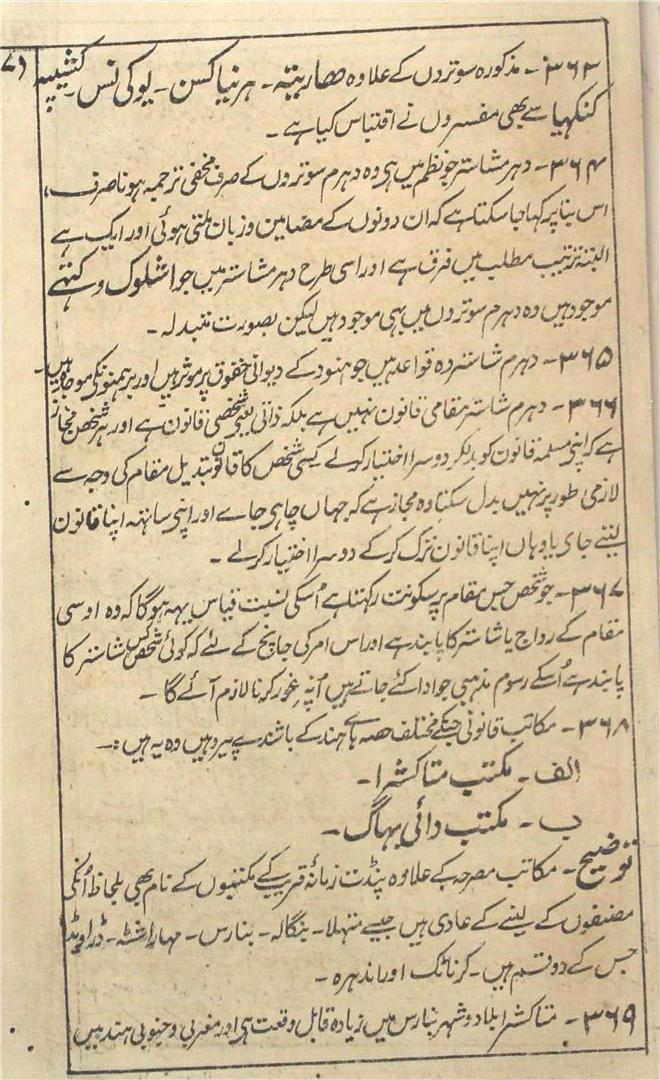 (۷
۳۶۳- مذکورہ سوتروں کے علاوہ ھاریتہ - ہرنیاکسن - یوکی نس - کشیپہ
کنکہیا سے بھی مفسروں نے اقتباس کیا ہے -
۳۶۴- دہرمشاستر جو نظم میں ہی وہ دہرم سوتروں کے صرف مخفی ترجمہ ہونا صرف،
اس بنا پر کہا جا سکتا ہے کہ ان دونوں کے مضامین و زبان ملتی ہوئی اور ایک ہے
البتہ ترتیب مطلب میں فرق ہے اور اسی طرح دہرمشاستر میں جو اشلوک و کنتہے
موجود ہیں وہ دہرم سوتروں میں بہی موجود ہیں لیکن بصورت متبدلہ -
۳۶۵- دہرم شاستر وہ قواعد ہیں جو ہنود کے دیوانی حقوق پر موثر ہیں اور برہمنونکی موجد ہیں
۳۶۶- دہرم شاستر مقامی قانون نہیں ہے بلکہ ذاتی یعنی شخصی قانون ہے اور ہر شخص مجاز
ہے کہ اپنی مسلمہ قانون کو بدلکر دوسرا اختیار کرلے کسی شخص کا قانون تبدیل مقام کی وجہ سے
لازمی طور پر نہیں بدل سکتا وہ مجاز ہے کہ جہاں چاہی جاے اور اپنی ساتہہ اپنا قانون
لیتے جای یا وہاں اپنا قانون ترک کرکے دوسرا اختیار کرلے -
۳۶۷- جو شخص جس مقام پر سکونت رکہتا ہے اُسکی نسبت قیاس یہہ ہوگا کہ وہ اوسی
مقام کے رواج یا شاستر کا پابند ہے اور اس امر کی جانچ کے لئے کہ کوئی شخص کس شاستر کا
پابند ہے اُسکے رسوم مذہبی جو ادا کئے جاتے ہیں اُنپر غور کرنا لازم آئے گا -
۳۶۸- مکاتب قانونی جنکے مختلف حصہ ہاے ہند کے باشندے پیرو ہیں وہ یہ ہیں :-
الف - مکتب متاکشرا -
ب - مکتب دائی بہاگ -
توضیح - مکاتب مصرحہ کے علاوہ پنڈت زمانۂ قریب کے مکتبوں کے نام بھی بلحاظ اُنکی
مصنفوں کے لینے کے عادی ہیں جیسے متہلا - بنگالہ - بنارس - مہاراشٹہ - ڈراویڈا
جس کے دو قسم ہیں - کرناٹک اور اندہرہ -
۳۶۹- متاکشرا بلاد و شہر بنارس میں زیادہ قابل وقعت ہی اور مغربی و جنوبی ہند میں